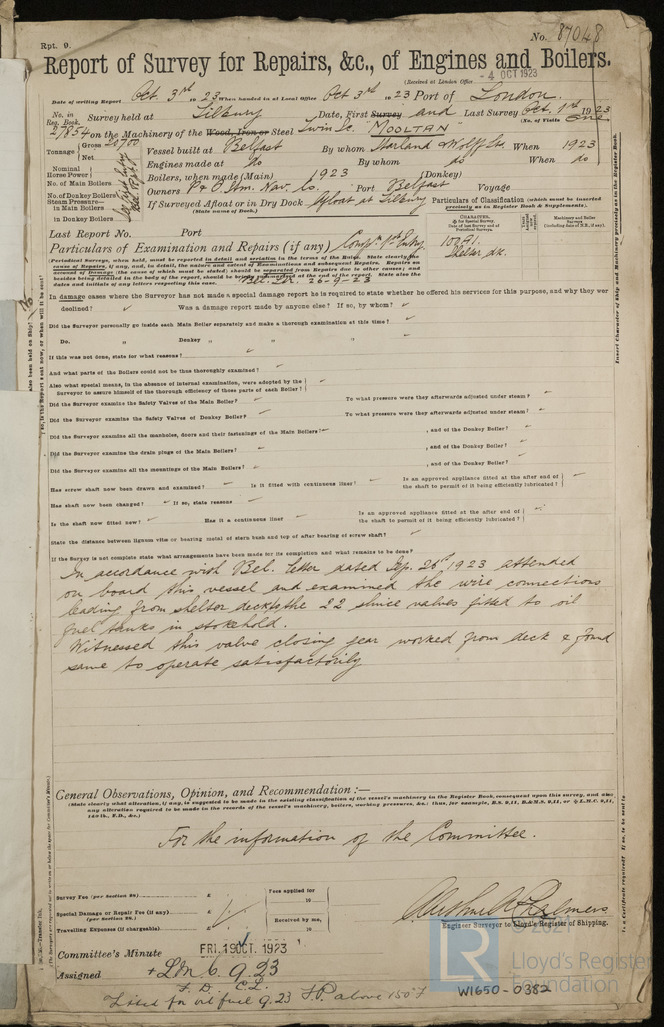 Rpt. 9.
No. 87048
Report of Survey for Repairs, &c., of Engines and Boilers.
(Received at London Office - 4 OCT 1923
Date of writing Report Oct. 3rd 19 23 When handed in at Local Office Oct 3rd 19 23 Port of London.
No. in Reg. Book. Survey held at Tilbury Date, First Survey and Last Survey Oct. 1st 1923
(No. of Visits one)
27854 on the Machinery of the Wood, Iron or Steel Twin Sc. "MOOLTAN"
Tonnage Gross 20700 Net
Vessel built at Belfast By whom Harland & Wolff Ltd. When 1923
Nominal Horse Power
Engines made at do By whom do When do
No. of Main Boilers
Boilers, when made (Main) 1923 (Donkey)
No. of Donkey Boilers
Owners P & O Stm. Nav. Co. Port Belfast Voyage
Steam Pressure—
in Main Boilers
in Donkey Boilers
If Surveyed Afloat or in Dry Dock Afloat at Tilbury
(State name of Dock.)
Particulars of Classification (which must be inserted
precisely as in Register Book & Supplements).
Last Report No. Port
Particulars of Examination and Repairs (if any)
100 A1.
Shelter dk.
(Periodical Surveys, when held, must be reported in detail and seriatim in the terms of the Rules. State clearly the
cause of Repairs, if any, and, in detail, the nature and extent of Examinations and subsequent Repairs. Repairs on
account of Damage (the cause of which must be stated) should be separated from Repairs due to other causes; and
besides being detailed in the body of the report, should be briefly summarized at the end of the report. State also the
dates and initials of any letters respecting this case.
Bel. Ltr. 26-9-23
In damage cases where the Surveyor has not made a special damage report he is required to state whether he offered his services for this purpose, and why they were
declined? Was a damage report made by anyone else? If so, by whom?
Did the Surveyor personally go inside each Main Boiler separately and make a thorough examination at this time?
Do. " Donkey " " "
If this was not done, state for what reasons?
And what parts of the Boilers could not be thoroughly examined?
Also what special means, in the absence of internal examination, were adopted by the
Surveyor to assure himself of the thorough efficiency of those parts of each Boiler?
Did the Surveyor examine the Safety Valves of the Main Boiler? To what pressure were they afterwards adjusted under steam?
Did the Surveyor examine the Safety Valves of Donkey Boiler? To what pressure were they afterwards adjusted under steam?
Did the Surveyor examine all the manholes, doors and their fastenings of the Main Boilers? , and of the Donkey Boiler?
Did the Surveyor examine the drain plugs of the Main Boilers? , and of the Donkey Boiler?
Did the Surveyor examine all the mountings of the Main Boilers? , and of the Donkey Boiler?
Has screw shaft now been drawn and examined? Is it fitted with continuous liner? Is an approved appliance fitted at the after end of
the shaft to permit of it being efficiently lubricated?
Has shaft now been changed? If so, state reasons
Is the shaft now fitted new? Has it a continuous liner Is an approved appliance fitted at the after end of
the shaft to permit of it being efficiently lubricated?
State the distance between lignum vitæ or bearing metal of stern bush and top of after bearing of screw shaft?
If the Survey is not complete state what arrangements have been made for its completion and what remains to be done?
In accordance with Bel. Letter dated Sep. 26th 1923 attended
on board this vessel and examined the wire connections
leading from shelter deck to the 22 sluice valves fitted to oil
fuel tanks in stokehold.
Witnessed this valve closing gear worked from deck & found
same to operate satisfactorily
General Observations, Opinion, and Recommendation:—
(State clearly what alteration, if any, is suggested to be made in the existing classification of the vessel's machinery in the Register Book, consequent upon this survey, and also
any alteration required to be made in the records of the vessel's machinery, boilers, working pressures, &c.; thus, for example, B.S. 9,11, B.&M.S. 9,11, or L.M.C. 9,11,
140 lb., F.D., &c.)
For the information of the Committee.
Survey Fee (per Section 28) £
Special Damage or Repair Fee (if any)
(per Section 28.) £
Travelling Expenses (if chargeable) £
Fees applied for
19
Received by me,
19
Engineer Surveyor to Lloyd's Register of Shipping.
Committee's Minute FRI. 19 OCT. 1923
Assigned + Ldn 6. 9. 23
F. D. C.L.
Fitted for oil fuel 9.23 F.P. above 150°F
W1650-0382
© 2021
LR
Lloyd's Register
Foundation